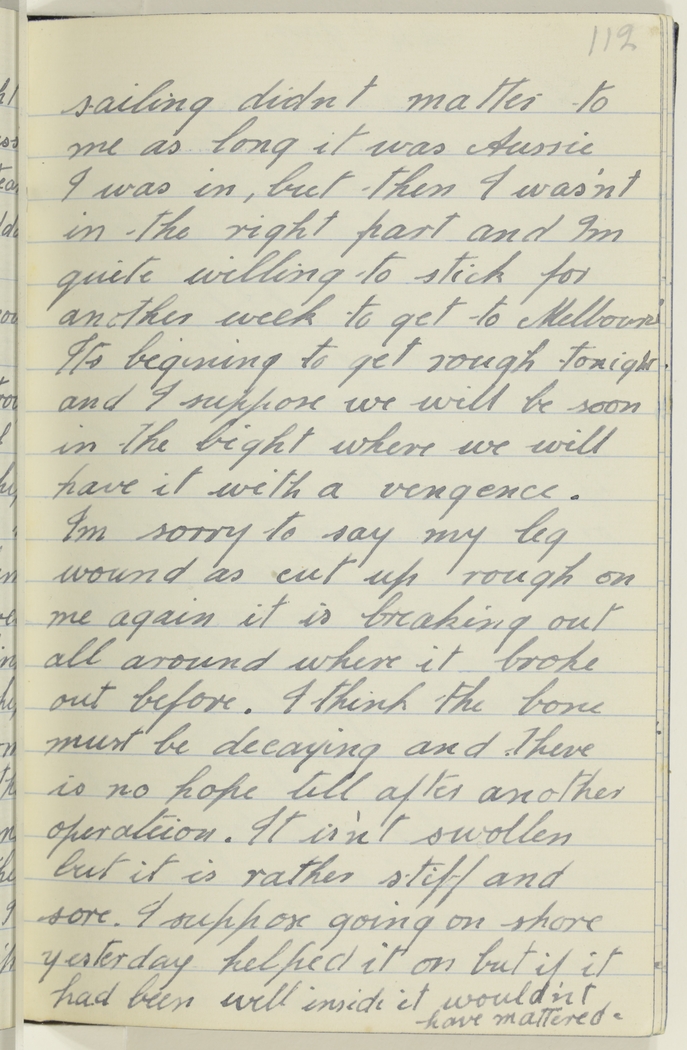 112
sailing didnt matter to
me as long it was Aussie
I was in, but then I was'nt
in the right part and Im
quite willing to stick for
another week to get to Melbourne
Its begining to get rough tonight.
and I suppose we will be soon
in the bight where we will
have it with a vengence.
Im sorry to say my leg
wound as cut up rough on
me again it is breaking out
all around where it broke
out before. I think the bone
must be decaying and there
is no hope till after another
operation. It is'nt swollen
but it is rather stiff and
sore. I suppose going on shore
yesterday helped it on but if it
had been well inside it would'nt
have mattered.